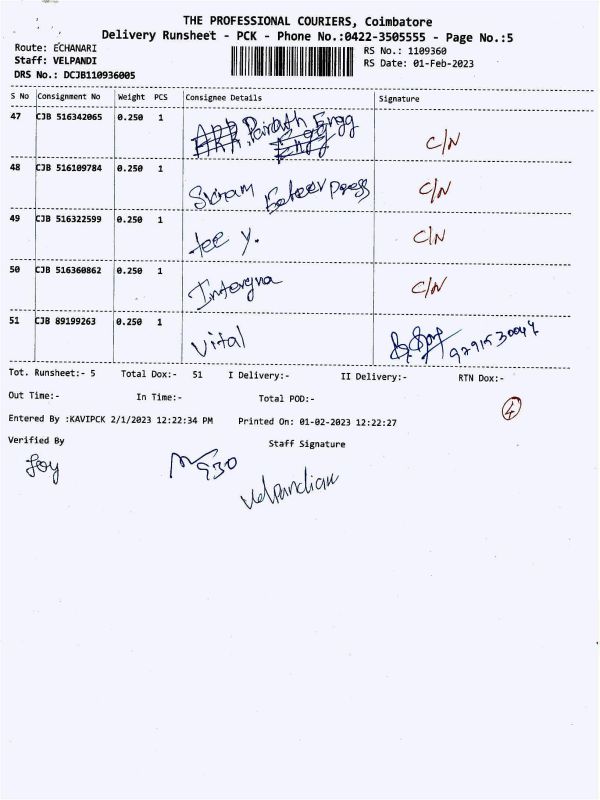 THE PROFESSIONAL COURIERS, Coimbatore
Delivery Runsheet - PCK - Phone No.:0422-3505555 - Page No.:5
Route: ECHANARI
RS No.: 1109360
Staff: VELPANDI
RS Date: 01-Feb-2023
DRS No.: DCJB110936005
S No Consignment No Weight PCS Consignee Details Signature
47 CJB 516342065 0.250 1 Engg C/N
48 CJB 516109784 0.250 1 Sriram C/N
49 CJB 516322599 0.250 1 Tee y. C/N
50 CJB 516360862 0.250 1 C/N
51 CJB 89199263 0.250 1 Vital
Tot. Runsheet:- 5 Total Dox:- 51 I Delivery:- II Delivery:- RTN Dox:-
Out Time:- In Time:- Total POD:- 4
Entered By :KAVIPCK 2/1/2023 12:22:34 PM Printed On: 01-02-2023 12:22:27
Verified By Staff Signature
Joy 930
Velpandian